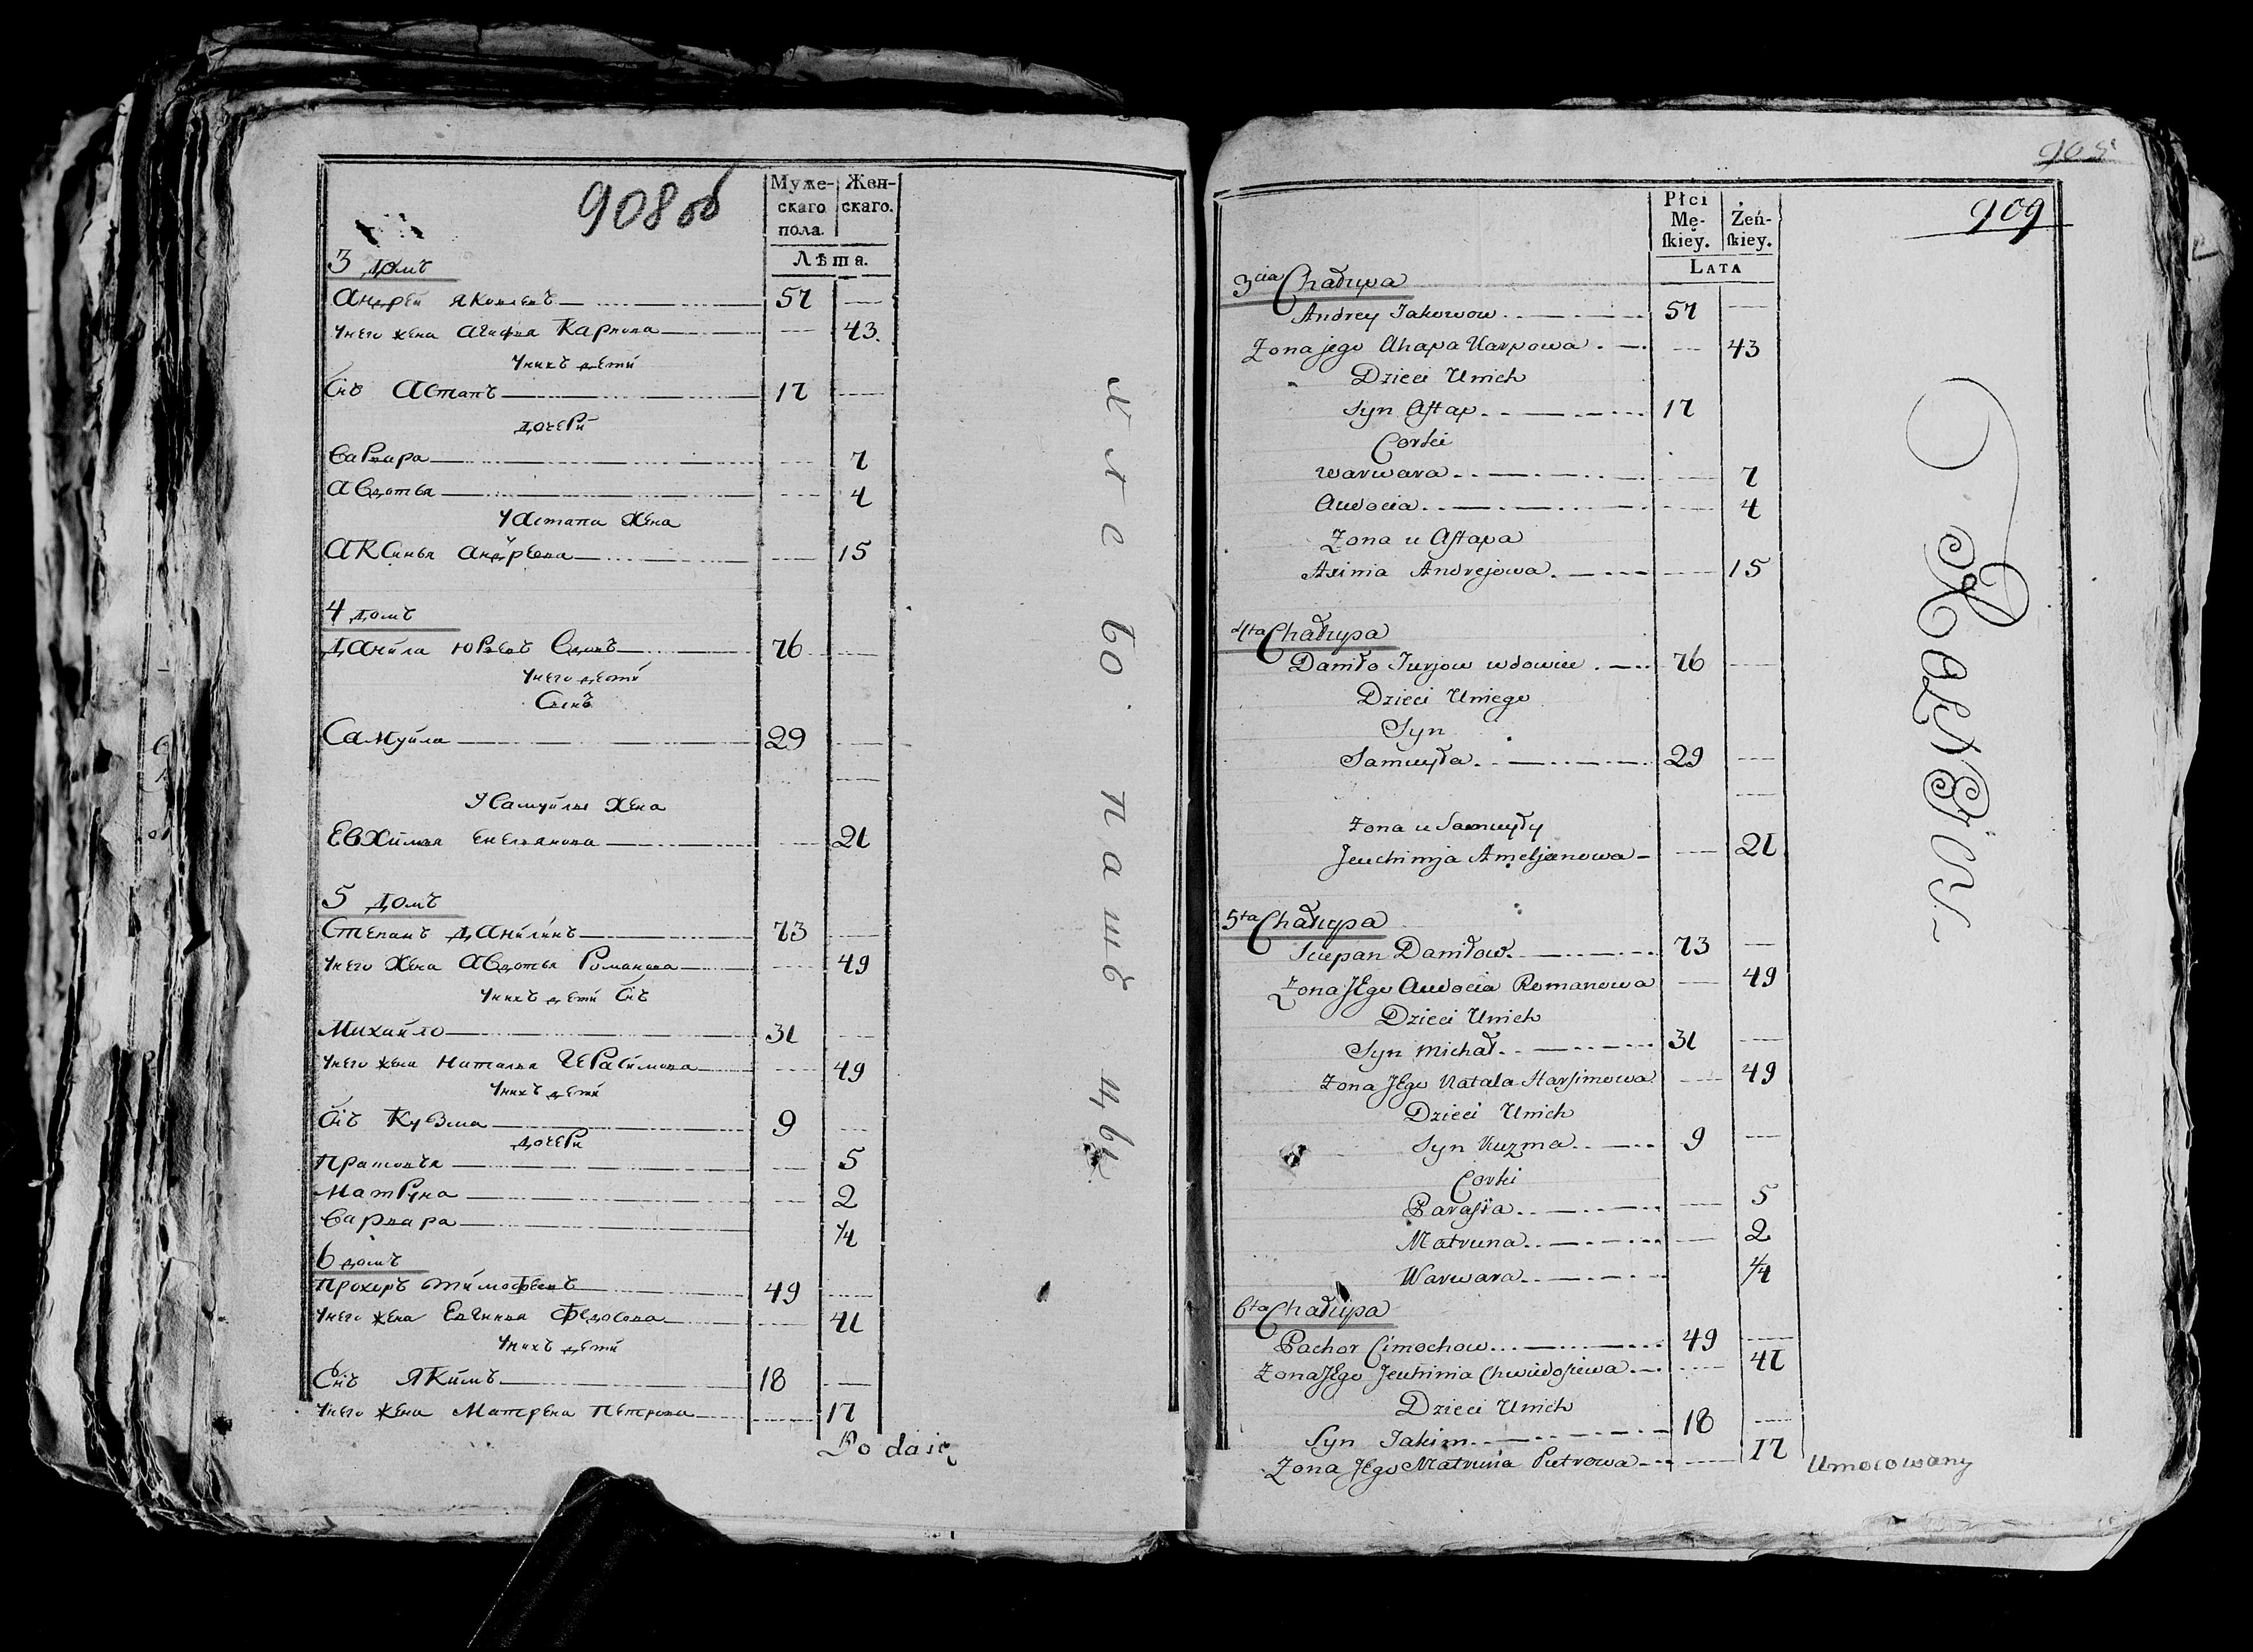 908 об
Муже-
скаго
пола.
Жен-
скаго.
Лѣта.
3 домъ
Андрей Яковлевъ 57
Унего жена Агафия Карпова 43
Унихъ дети
Снъ Астапъ 17
дочери
Варвара 7
Авдотья 4
У Астапа жена
Аксинья Андреева 15
4 домъ
Данила Юрьевъ вдовъ 76
Унего дети
Сынъ
Самуйла 29
У Самуйлы жена
Евхимья Емельянова 21
5 домъ
Степанъ Данилинъ 73
Унего жена Авдотья Романова 49
Унихъ дети Снъ
Михайло 31
Унего жена Наталья Герасимова 49
Унихъ дети
Снъ Кузма 9
дочери
5
Матруна 2
Варвара 1/4
6 домъ
Прохоръ Тимофеевъ 49
Унего жена Евгиния Федосова 41
Унихъ дети
Снъ Якимъ 18
Унего жена Матрена Петрова 17
909
Płci
Mę-
ſkiey.
Żeń-
ſkiey.
LATA
3cia Chałupa
Andrey Jakowow 57
Zona jego Ahapa Karpowa 43
Dzieci Unich
Syn Aſtap 17
Corki
Warwara 7
Audocia 4
Zona u Aſtapa
Axinia Andrejowa 15
4ta Chałupa
Daniło Jurjow wdowiec 76
Dzieci Uniego
Syn
Samuyła 29
Zona u Samuyły
Jeuchimja Ameljanowa 21
5ta Chałupa
Sciepan Daniłow 73
Zona Jego Audocia Romanowa 49
Dzieci Unich
Syn Michał 31
Zona Jego Natala Harſimowa 49
Dzieci Unich
Syn Kuzma 9
Corki
Paraſka 5
Matruna 2
Warwara 1/4
6ta Chałupa
Pachor Cimochow 49
Zona Jego Jeuhinia Chwiedoſiewa 41
Dzieci Unich
Syn Jakim 18
Zona Jego Matruna Pietrowa 17
Umocowany